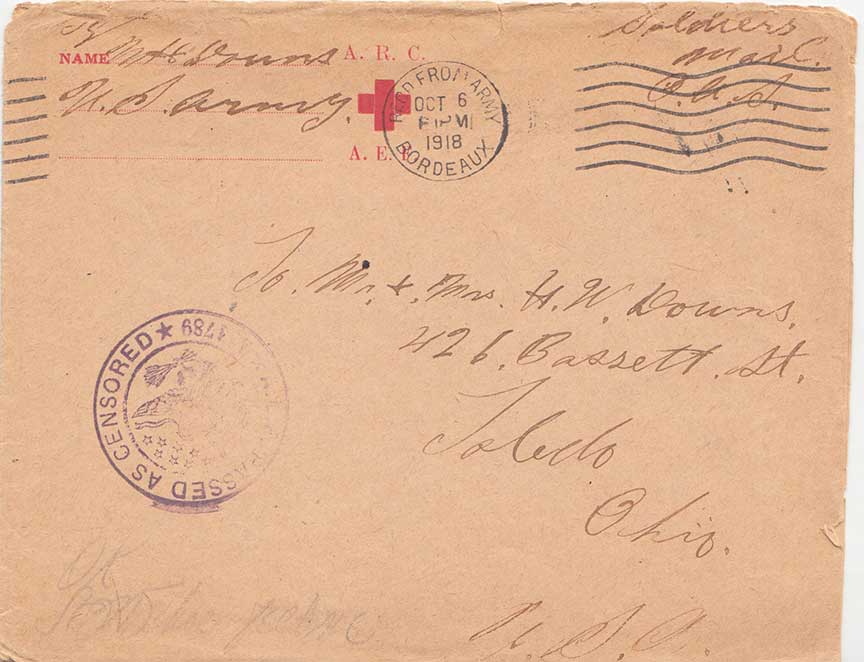 Soldiers
Mail.
NAME Downs A. R. C.
U.S. Army.
A. E. F.
REC'D FROM ARMY
OCT 6
PM
1918
BORDEAUX
To. Mr. & Mrs. H. W. Downs.
426. Bassett. St.
Toledo
Ohio.
U. S. A.
PASSED AS CENSORED ★ 4789
OK